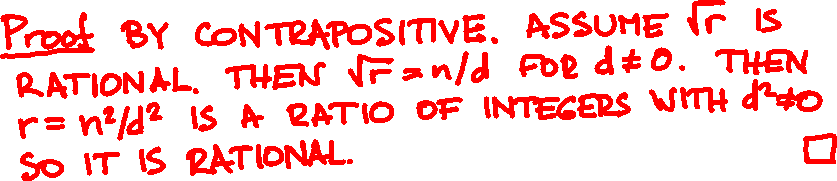 Proof BY CONTRAPOSITIVE. ASSUME √r IS
RATIONAL. THEN √r = n/d FOR d≠0. THEN
r = n²/d² IS A RATIO OF INTEGERS WITH d²≠0
SO IT IS RATIONAL. □